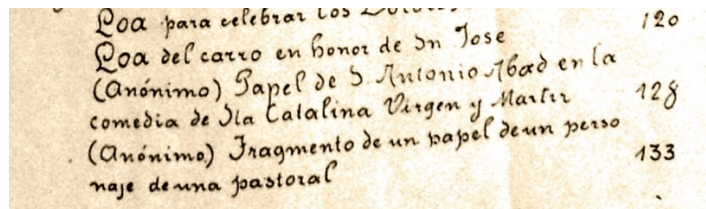 Loa para celebrar los Dolores 120
Loa del carro en honor de Sn Jose
(Anónimo) Papel de S. Antonio Abad en la
comedia de Sta Catalina Virgen y Martir 128
(Anónimo) Fragmento de un papel de un perso
naje de una pastoral 133